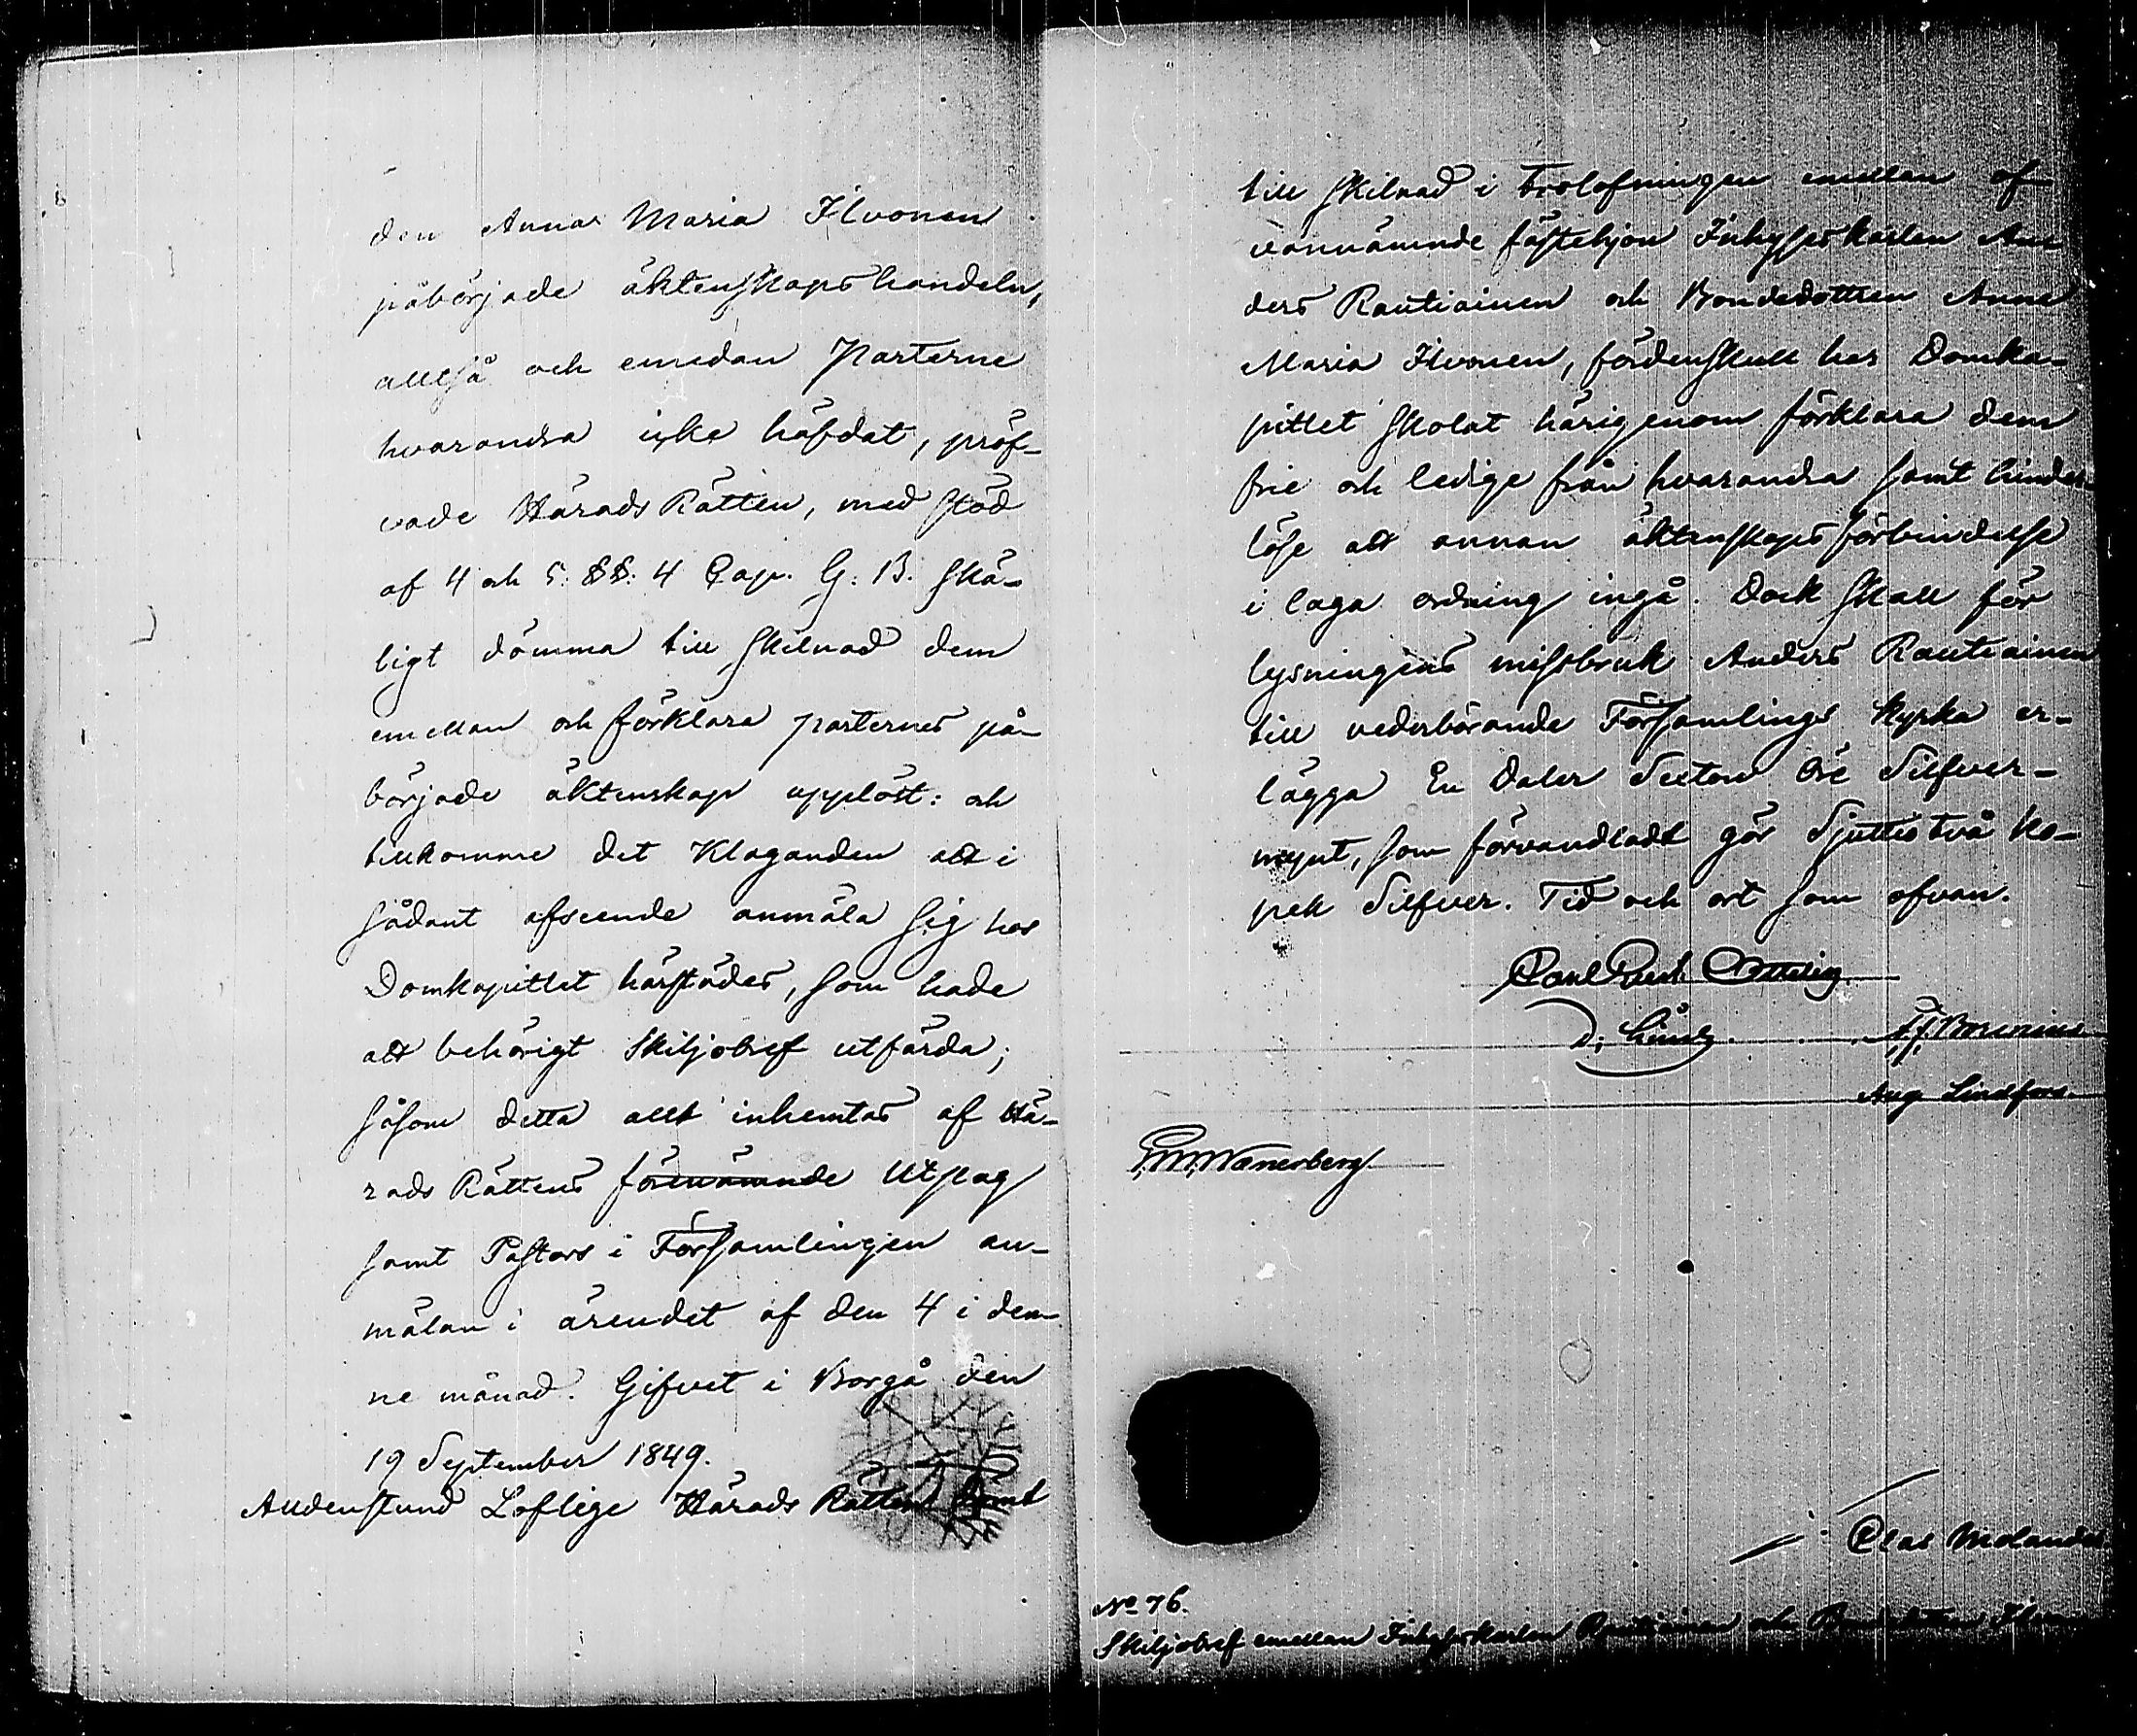 den Anna Maria Ilvonen
påbörjade äktenskapshandeln,
alltså och emedan Parterne
hvarandra icke häfdat, pröf-
vade Härads Rätten, med stöd
af 4 och 5: §§: 4 Cap. G: B: skä-
ligt dömma till skilnad dem
emellan och förklara parternes på-
började äktenskap upplöst: och
tillkomme det Klaganden att i
sådant afseende anmäla sig hos
Domkapitlet härstädes, som hade
att behörigt Skiljobref utfärda;
såsom detta allt inhemtas af Hä-
rads Rättens förenämnde Utslag
samt Pastors i Församlingen an-
mälan i ärendet af den 4 i den-
ne månad. Gifvet i Borgå den
19 September 1849.
Alldenstund Loflige Härads Rätten dömt
till skilnad i trolofningen emellan of-
vannämnde fästehjon Inhyseskarlen An-
ders Rautiainen och Bondedottren Anna
Maria Ilvonen, fördenskull har Domka-
pitlet skolat härigenom förklara dem
frie och ledige från hvarandra samt hinder-
löse att annan äktenskapsförbindelse
i laga ordning ingå. Dock skall för
lysningens missbruk Anders Rautiainen
till vederbörande Församlings kyrka er-
lägga En Daler Sexton öre Silfver-
mynt, som förvandladt gör Sjuttiotvå ko-
pek Silfver. Tid och ort som ofvan.
Carl Gust. Ottelin
A. J. Borenius
Aug. Lindfors.
G. M. Wænerberg
Clas Molander
No 76.
Skiljobref emellan Inhyseskarlen Rautiainen och Bondedottren Ilvonen